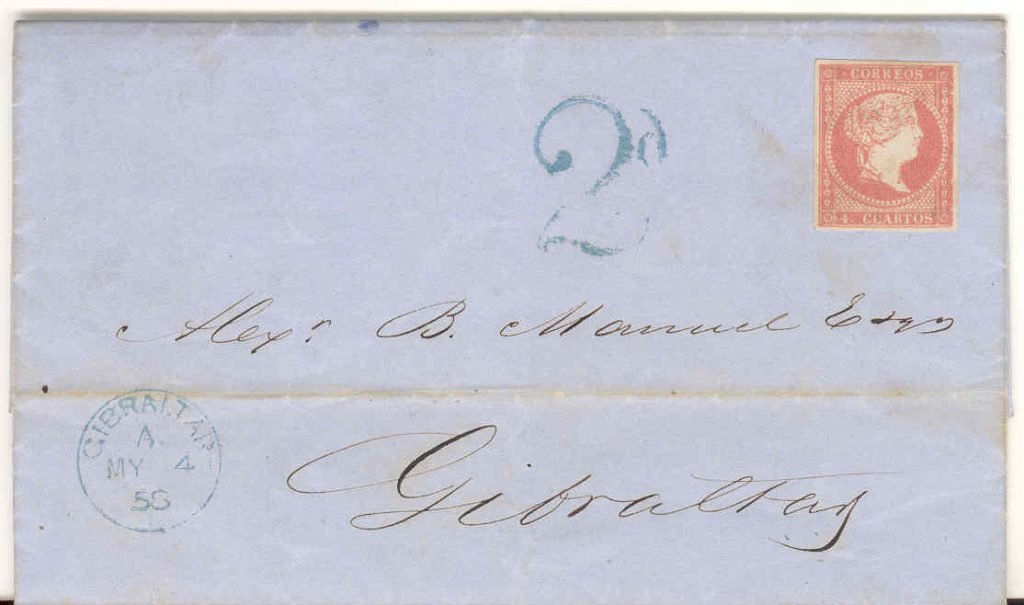 CORREOS
4 CUARTOS
2D
Alexr. B. Manuel Esqr
GIBRALTAR
A
MY 4
Gibraltar